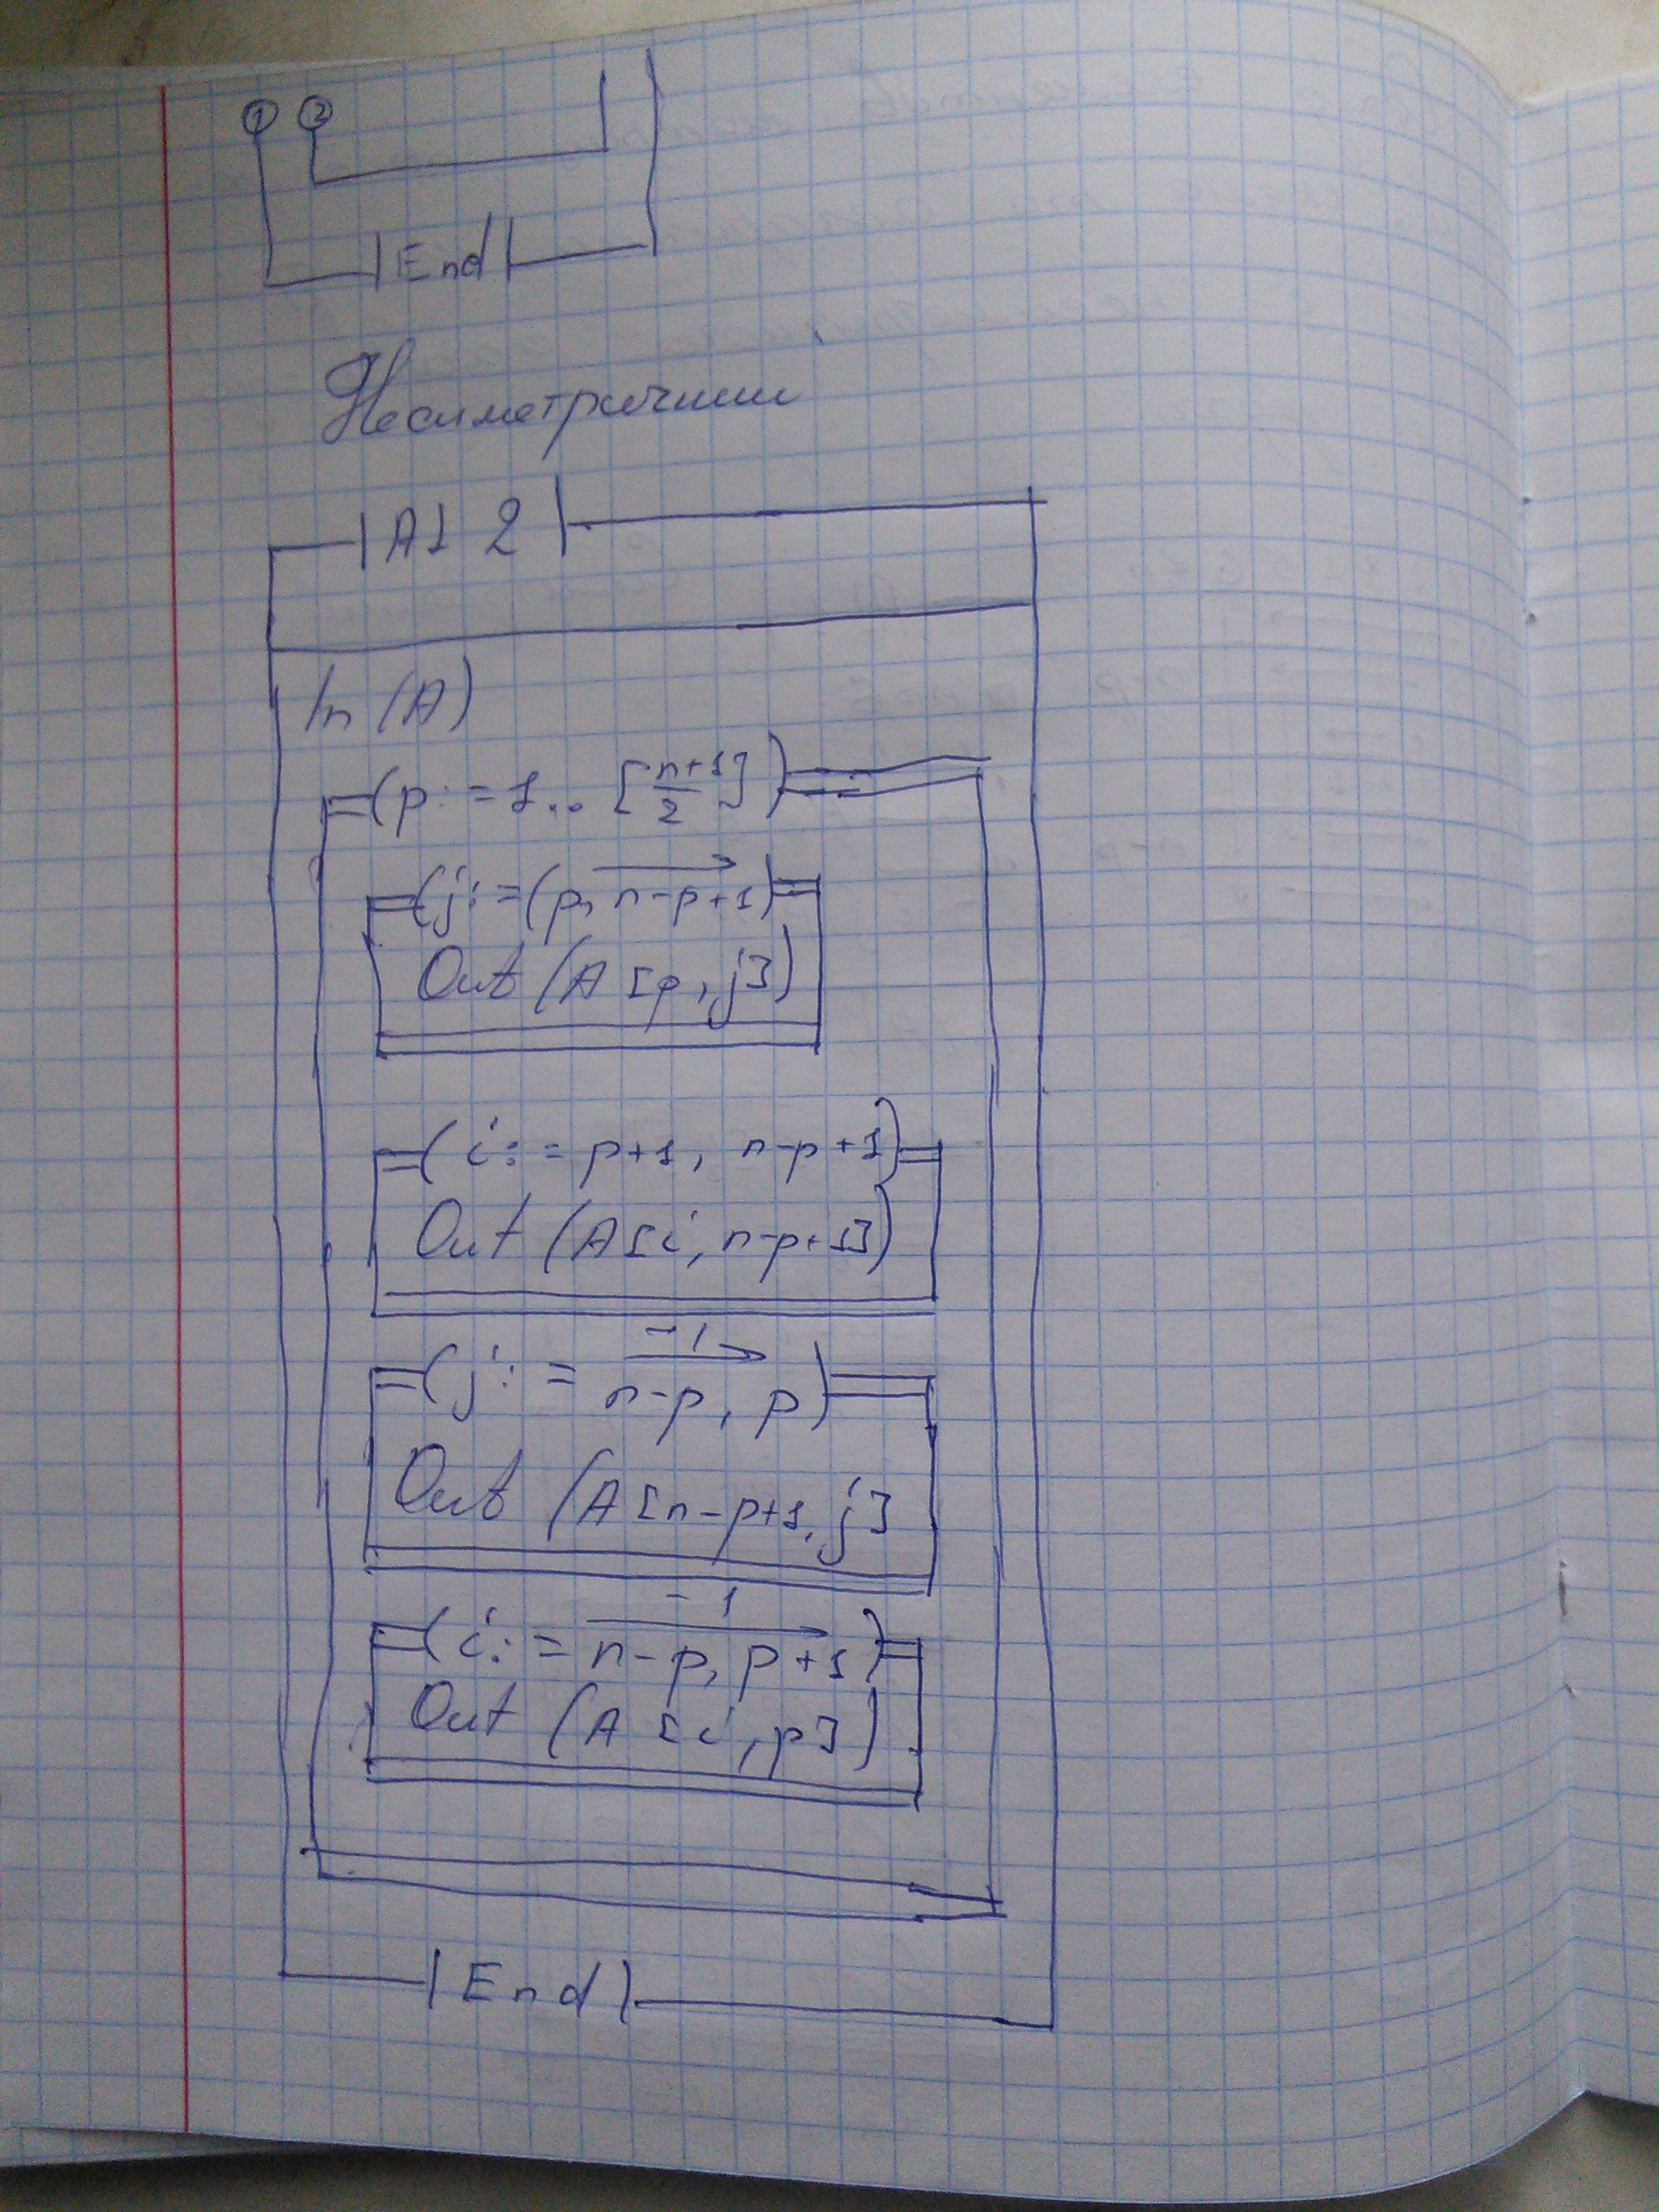 ① ②
End
Несиметричний
Al 2
In (A)
(p:=1..[n+1/2])
(j:=(p, n-p+1)
Out (A[p, j])
(i:=p+1, n-p+1)
Out (A[i, n-p+1])
-1
(j:= n-p, p)
Out (A[n-p+1, j]
-1
(i:= n-p, p+1)
Out (A[i, p])
End